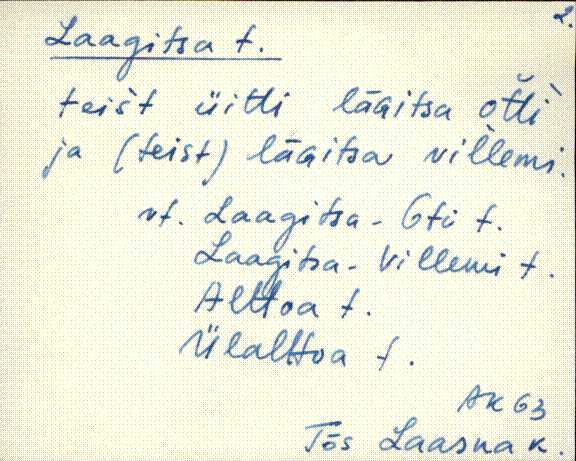 2.
Laagitsa t.
teist üitti lääitsa otti
ja (teist) lääitsa villemi.
vt. Laagitsa-Oti t.
Laagitsa-Villemi t.
Alttoa t.
Ülalttoa t.
AK 63
Tõs Laasna k.